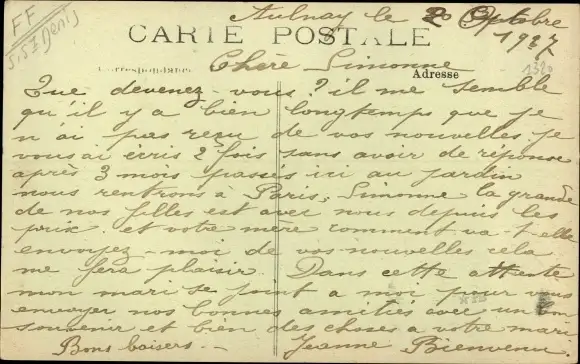 FF
S/S/Denis
Aulnay le 20 Octobre
1927
CARTE POSTALE
1320
Correspondance
Adresse
Chère Simonne
Que devenez-vous? il me semble
qu'il y a bien longtemps que je
n'ai pas reçu de vos nouvelles. je
vous ai écris 2 fois sans avoir de réponse
après 3 mois passés ici au jardin
nous rentrons à Paris, Simonne la grande
de nos filles est avec nous depuis les
prix. et votre mère comment va-t-elle
envoyez-moi de vos nouvelles cela
me fera plaisir. Dans cette attente
mon mari se joint a moi pour vous
envoyer nos bonnes amitiés avec un bon
souvenir et bien des choses a votre mari
Bons baisers - Jeanne Bienvenu